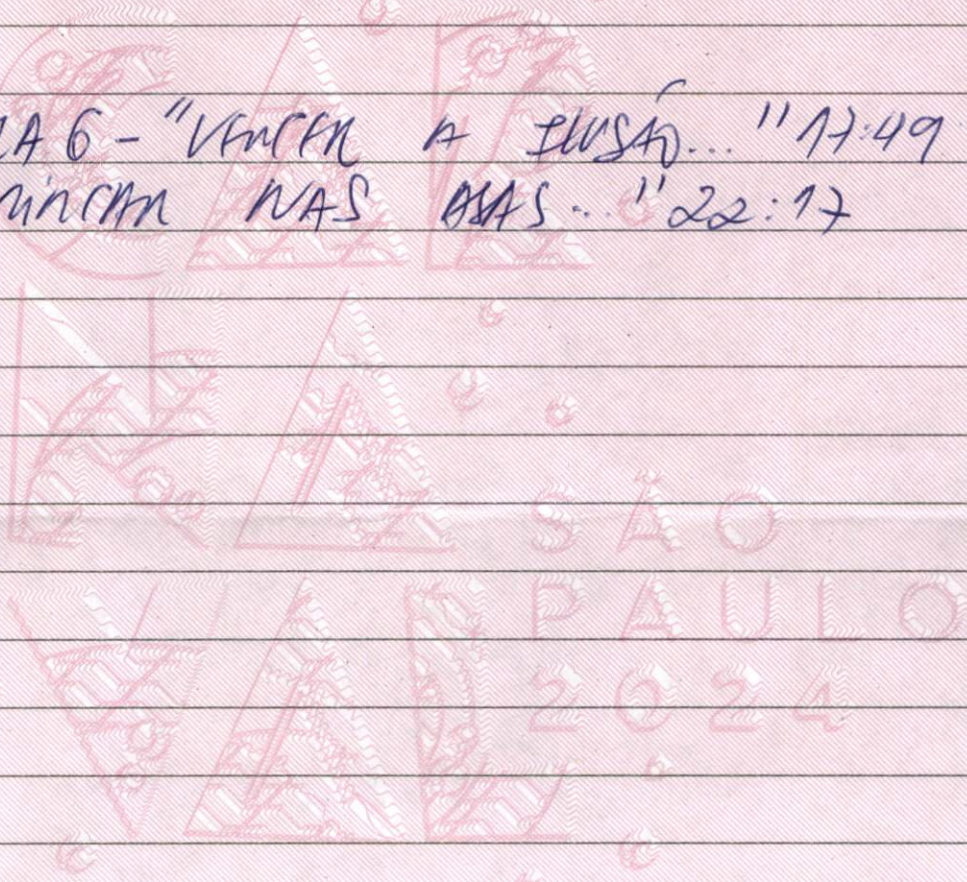 A 6 - "VENCER A ILUSÃO..." 17:49
NAS ASAS..." 22:17
SÃO
PAULO
2024